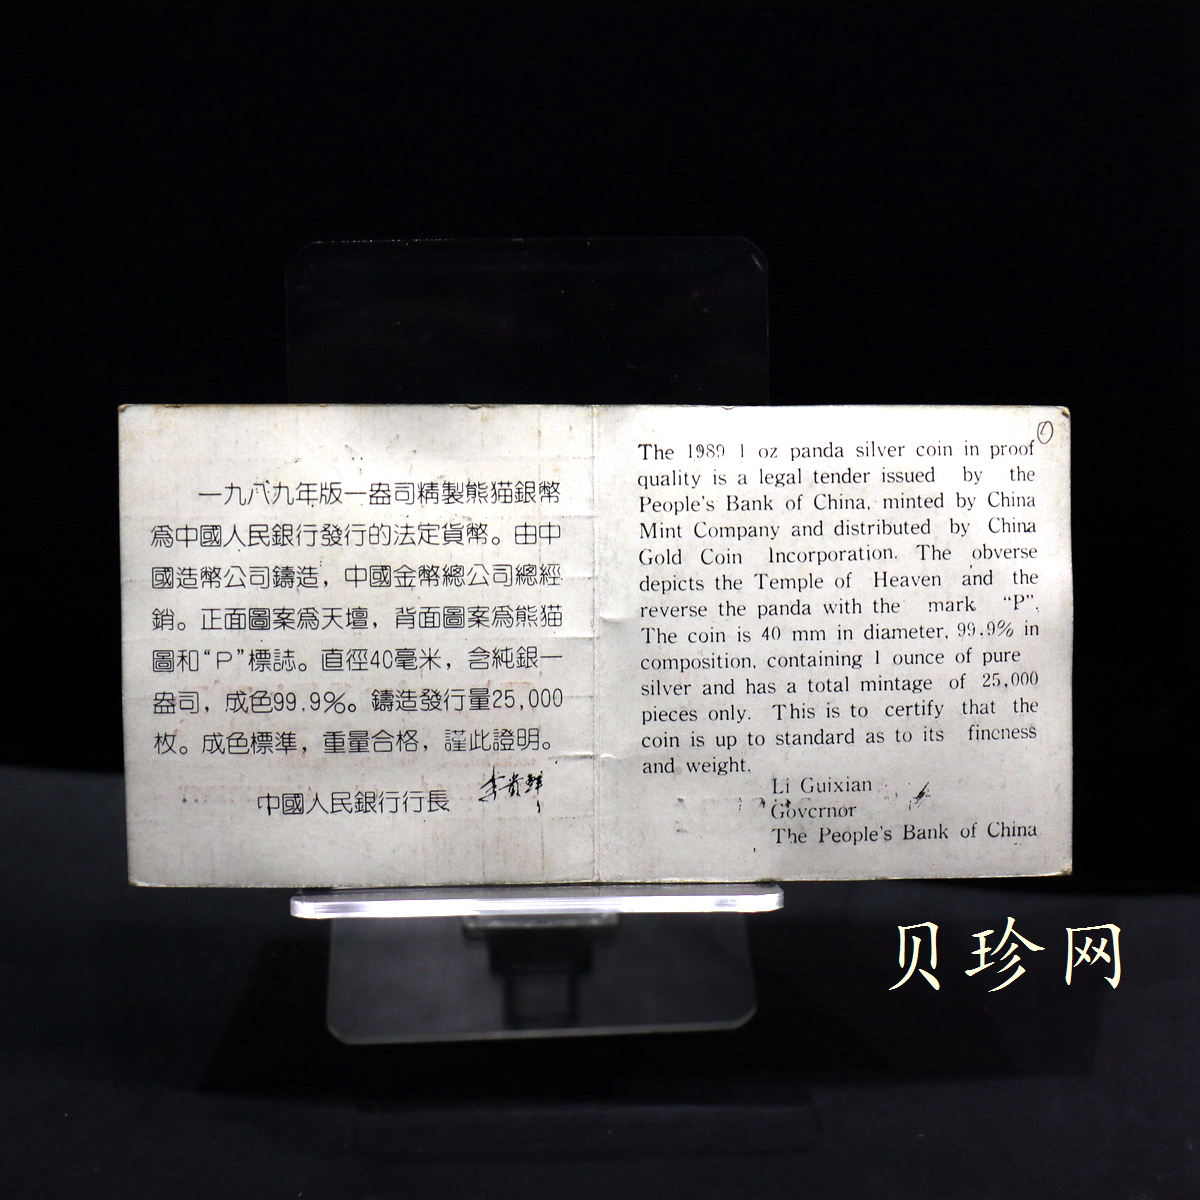 一九八九年版一盎司精製熊猫銀幣
為中國人民銀行發行的法定貨幣。由中
國造幣公司鑄造，中國金幣總公司總經
銷。正面圖案為天壇，背面圖案為熊猫
圖和“P”標誌。直徑40毫米，含純銀一
盎司，成色99.9%。鑄造發行量25,000
枚。成色標準，重量合格，謹此證明。
中國人民銀行行長 李貴鮮
The 1989 1 oz panda silver coin in proof
quality is a legal tender issued by the
People's Bank of China, minted by China
Mint Company and distributed by China
Gold Coin Incorporation. The obverse
depicts the Temple of Heaven and the
reverse the panda with the mark “P”.
The coin is 40 mm in diameter, 99.9% in
composition, containing 1 ounce of pure
silver and has a total mintage of 25,000
pieces only. This is to certify that the
coin is up to standard as to its fineness
and weight.
Li Guixian
Governor
The People's Bank of China
贝珍网